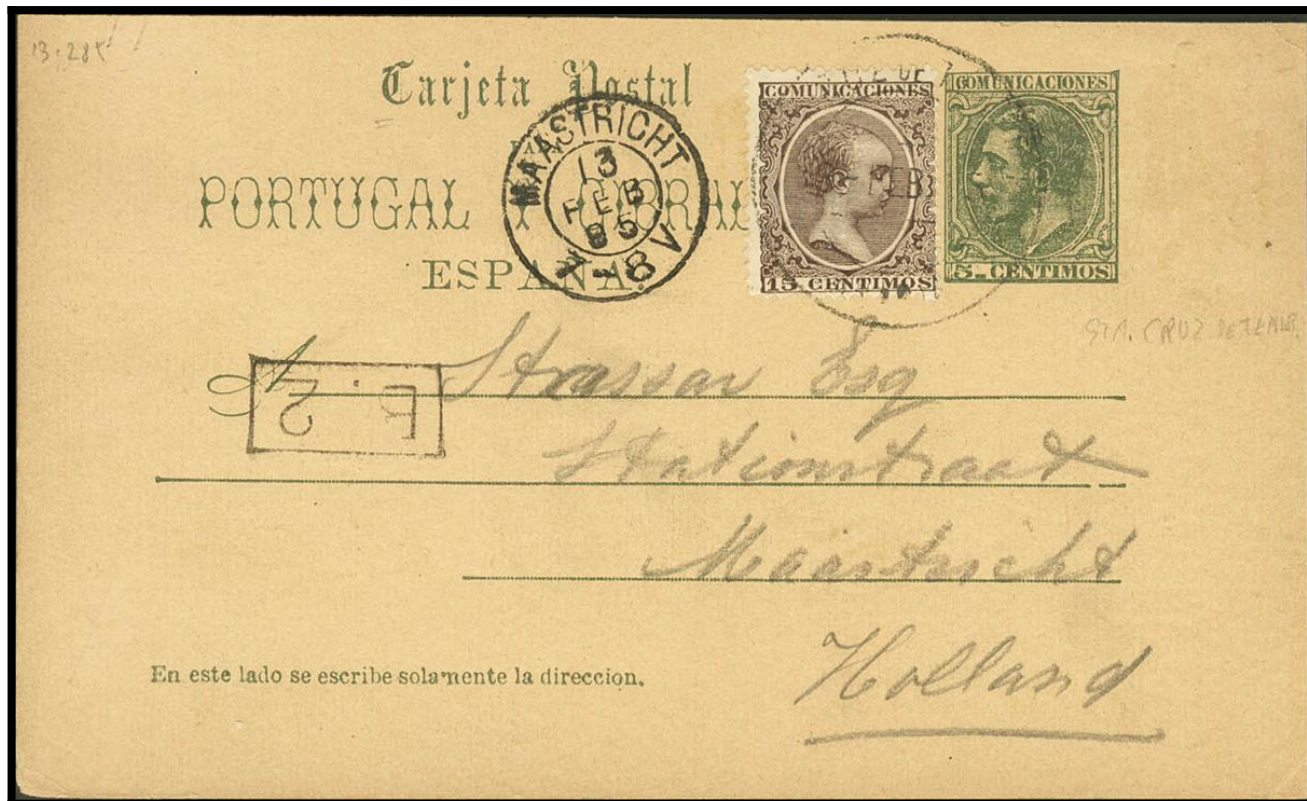 13.285
Tarjeta Postal
PORTUGAL Y GIBRAL
ESPAÑA.
MAASTRICHT
13
FEB
95
7-8 V
COMUNICACIONES
15 CENTIMOS
FEB
COMUNICACIONES
5 CENTIMOS
STA. CRUZ DE TENER.
A Strassar Esq
E.
2
Stationstraat
Maastricht
Holland
En este lado se escribe solamente la direccion.